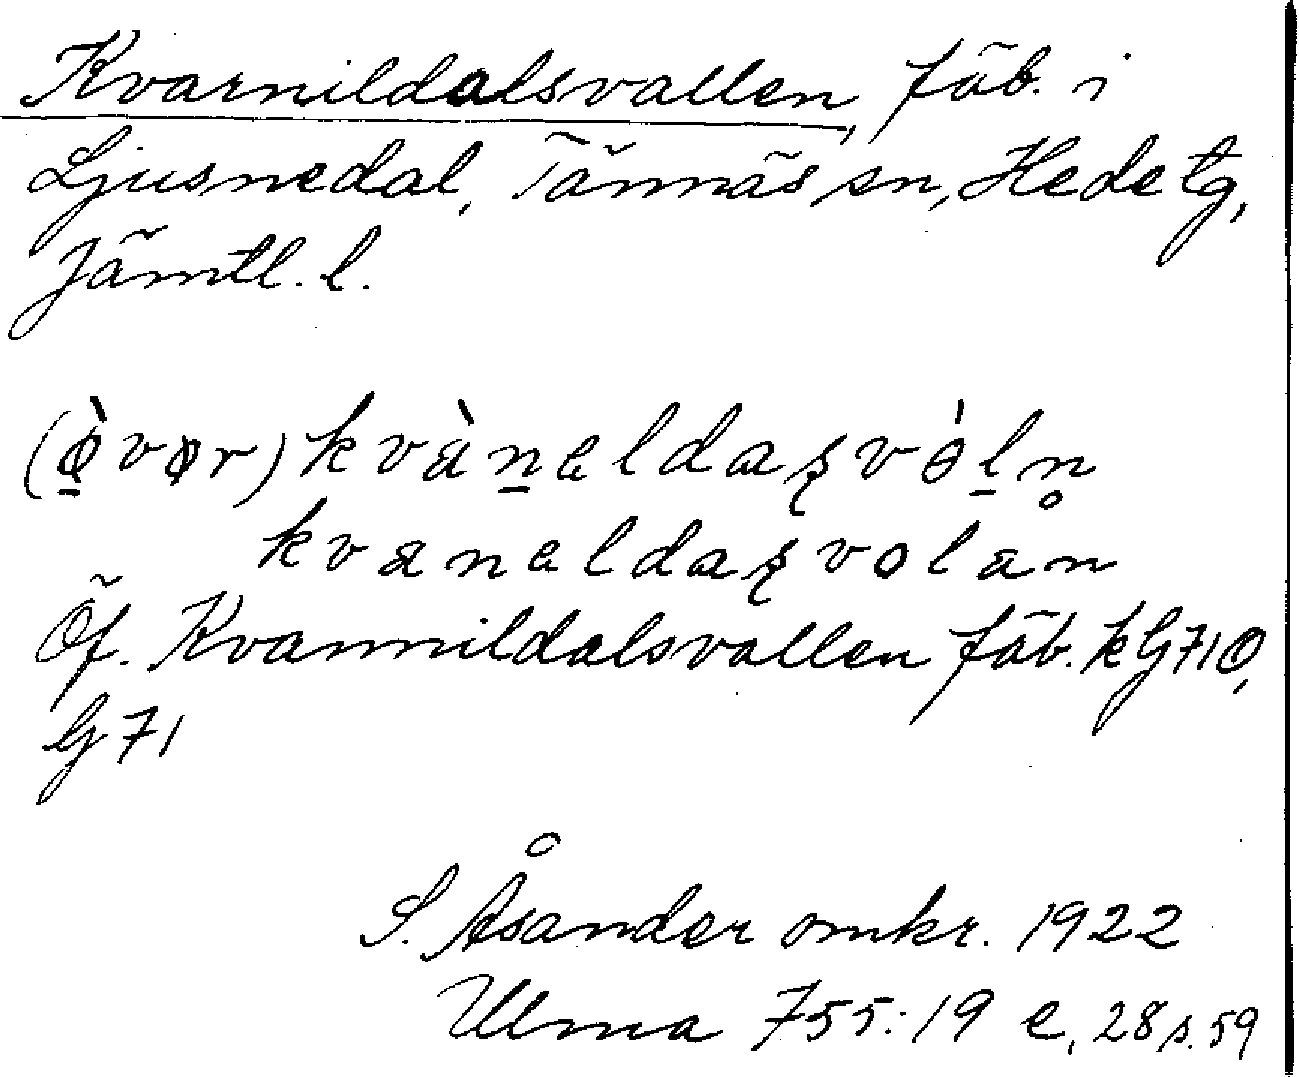 Kvarnildalsvallen, fäb. i
Ljusnedal, Tännäs sn, Hede tg,
Jämtl. l.
(ø̠̀vør) kvàn̠eldaʂvòl̠n̥
kvaneldaʂvolan
Öf. Kvarnildalsvallen fäb. k G71Ö,
G71
S. Åsander omkr. 1922
Ulma 755:19 e, 28 s. 59